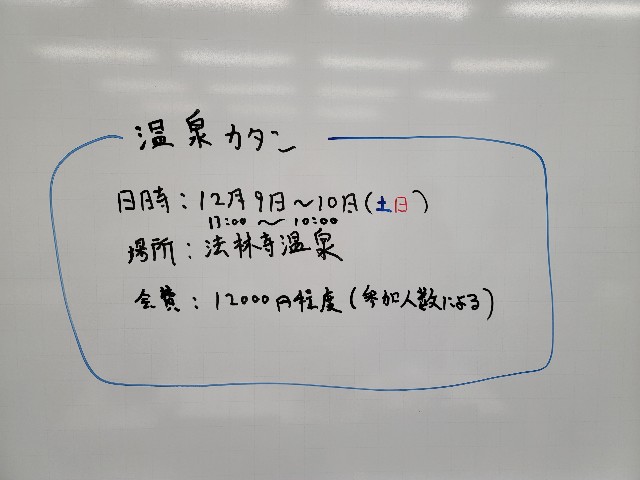 温泉カタン
日時：12月9日～10日(土日)
13:00 ～ 10:00
場所：法林寺温泉
会費：12000円程度(参加人数による)